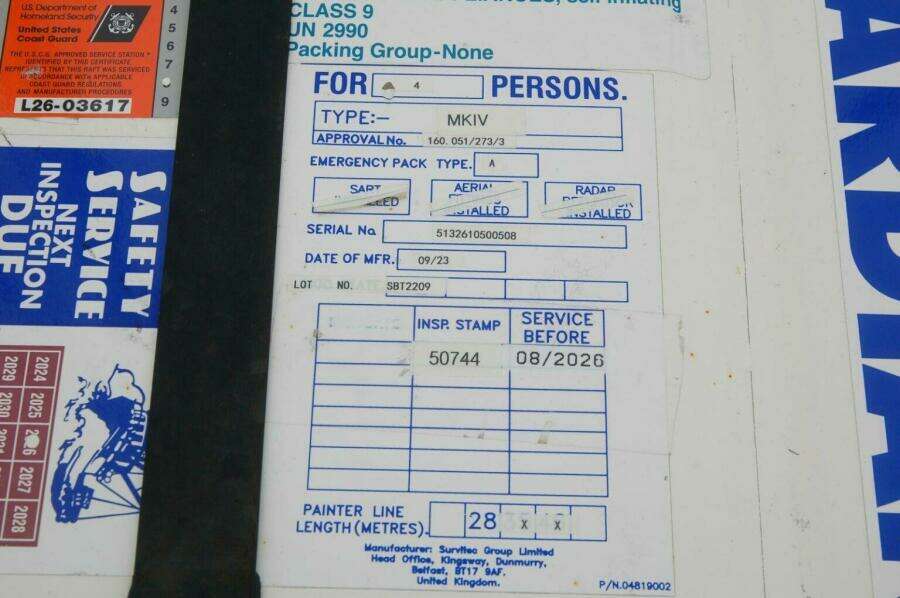 U.S. Department of
Homeland Security
United States
Coast Guard
THE U.S.C.G. APPROVED SERVICE STATION
IDENTIFIED BY THIS CERTIFICATE,
REPRESENTS THAT THIS RAFT WAS SERVICED
IN ACCORDANCE WITH APPLICABLE
COAST GUARD REGULATIONS
AND MANUFACTURER PROCEDURES
L26-03617
4
5
6
7
9
SAFETY
SERVICE
NEXT
INSPECTION
DUE
2024 2025 2026 2027 2028
2029 2030
self inflating
CLASS 9
UN 2990
Packing Group-None
FOR 4 PERSONS.
TYPE:- MKIV
APPROVAL No. 160.051/273/3
EMERGENCY PACK TYPE. A
SART
AERIAL
INSTALLED
RADAR
INSTALLED
SERIAL No. 5132610500508
DATE OF MFR. 09/23
LOT NO. SBT2209
INSP. STAMP SERVICE BEFORE
50744 08/2026
PAINTER LINE
LENGTH(METRES). 28 x x
Manufacturer: Survitec Group Limited
Head Office, Kingsway, Dunmurry,
Belfast, BT17 9AF.
United Kingdom.
P/N.04819002
ARDIA